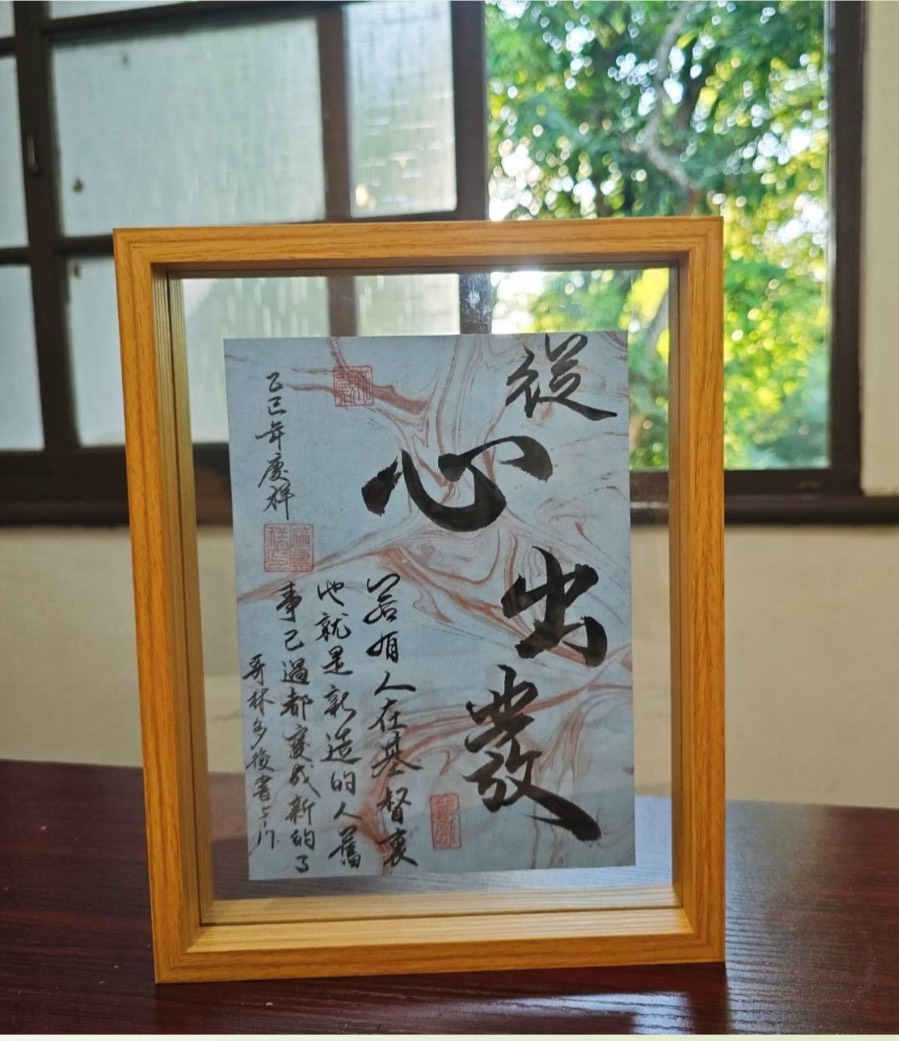 從心出發
若有人在基督裏
他就是新造的人舊
事已過都變成新的了
哥林多後書5:17
乙巳年慶祥